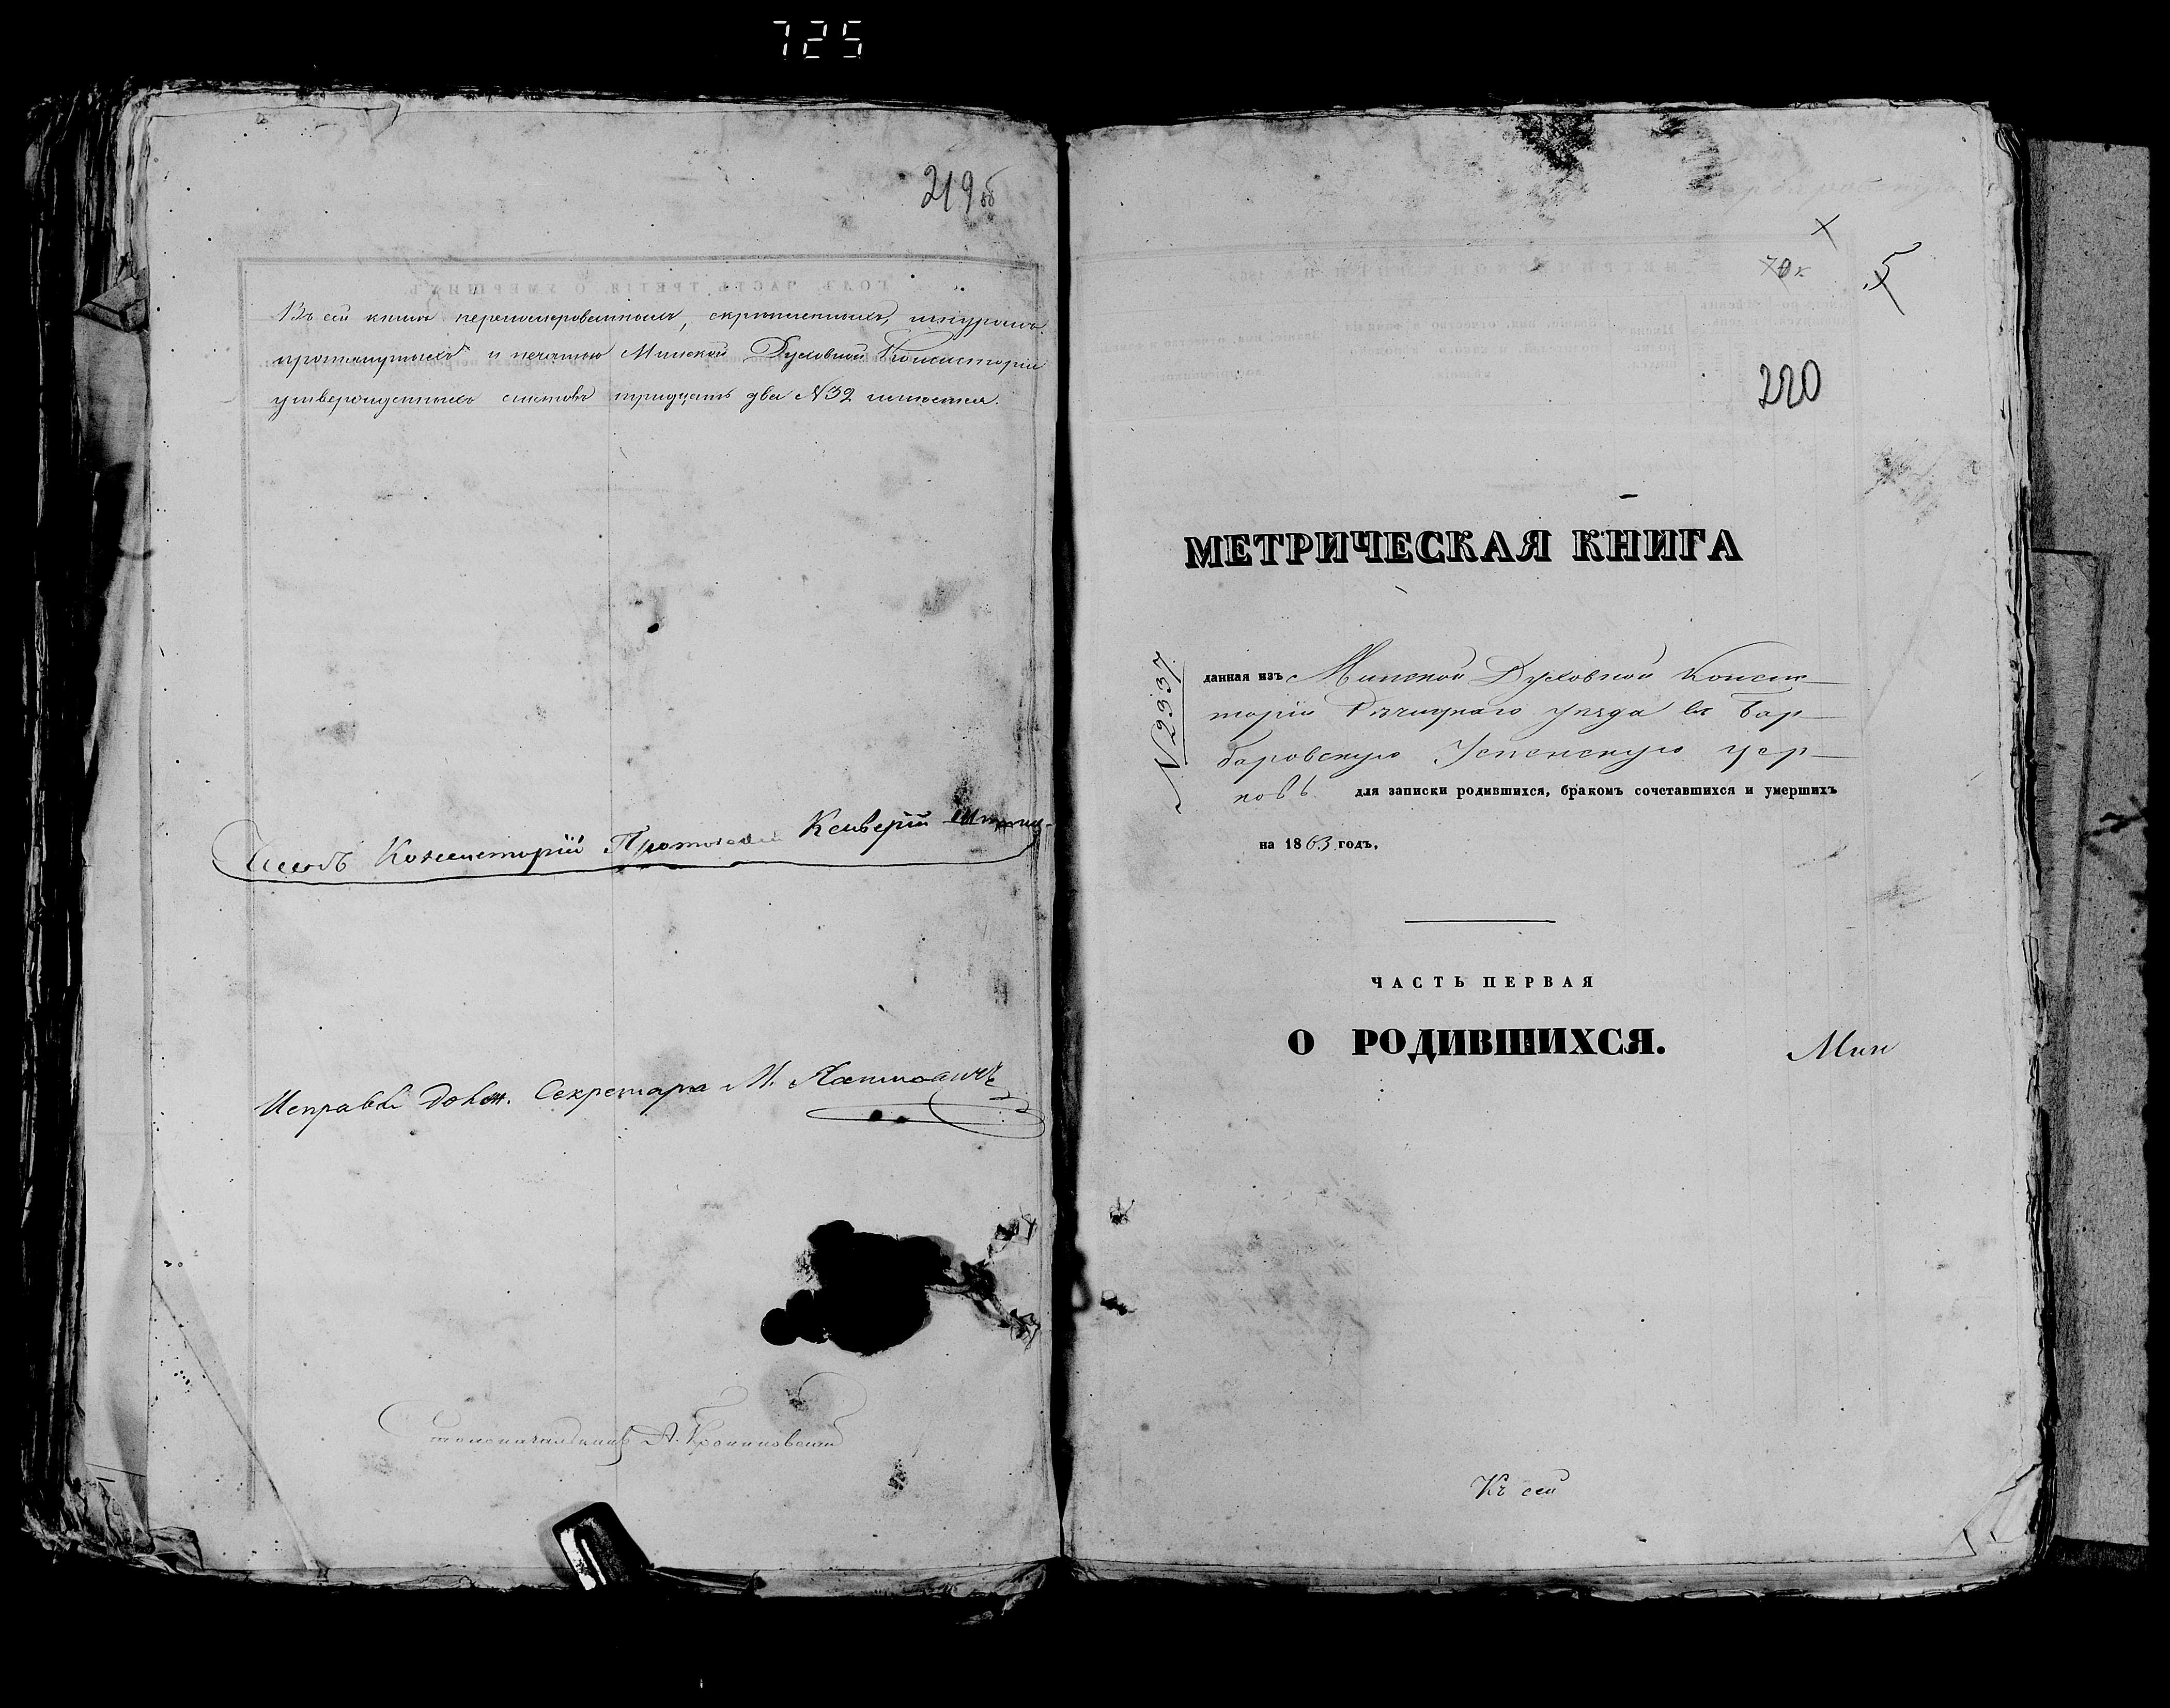 725
219 об
Въ сей книгѣ перенумерованныхъ, скрѣпленныхъ, шнуромъ
протянутыхъ и печатью Минской Духовной Консисторіи
утвержденныхъ листовъ тридцать два №32 имѣется.
Членъ Консисторіи Протоіерей
Исправл. долж. Секретаря М.
Столоначальникъ А.
х
70 к
5
220
МЕТРИЧЕСКАЯ КНИГА
№2337
данная изъ Минской Духовной Консис-
торіи Рѣчицкаго уѣзда въ Бар-
баровскую Успенскую цер-
ковь для записки родившихся, бракомъ сочетавшихся и умершихъ
на 1863 годъ,
ЧАСТЬ ПЕРВАЯ
О РОДИВШИХСЯ.
Мин
Къ сей